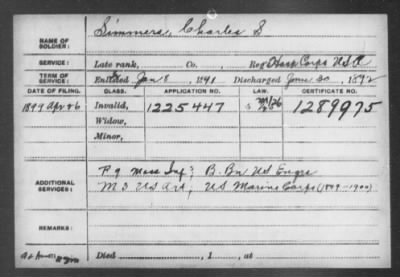 NAME OF SOLDIER: Simmers, Charles S
SERVICE: Late rank, Co. , Reg. Hosp Corps U.S.A
TERM OF SERVICE: Enlisted Jan 8, 1891 Discharged June 30, 1892
DATE OF FILING. CLASS. APPLICATION NO. LAW. CERTIFICATE NO.
1899 Apr 26 Invalid, 1225447 1289975
Widow,
Minor,
ADDITIONAL SERVICES: F. 9 Mass Inf; B. Bn US Engrs
M D US Art; US Marine Corps (1899-1900)
REMARKS:
Died , 1 , at